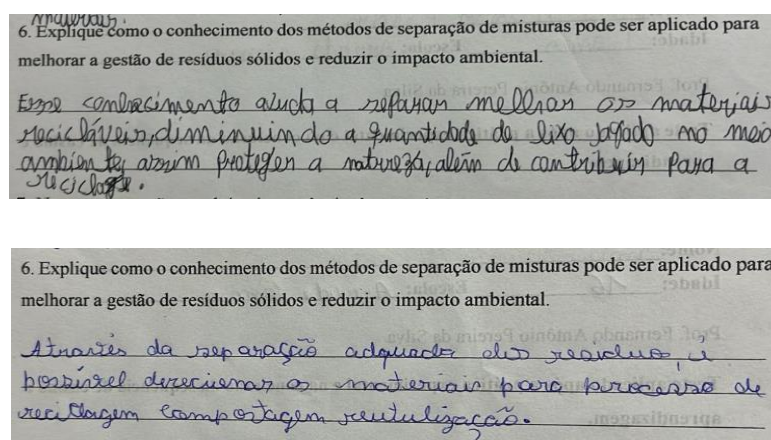 materiais.
6. Explique como o conhecimento dos métodos de separação de misturas pode ser aplicado para
melhorar a gestão de resíduos sólidos e reduzir o impacto ambiental.
Esse conhecimento ajuda a separar melhor os materiais
recicláveis, diminuindo a quantidade de lixo jogado no meio
ambiente, assim proteger a natureza, além de contribuir para a
reciclage.
6. Explique como o conhecimento dos métodos de separação de misturas pode ser aplicado para
melhorar a gestão de resíduos sólidos e reduzir o impacto ambiental.
Atravíes da separação adquada dos residuos, é
possível direcienar os materiais para processo de
reciclagem compostagem reutulização.